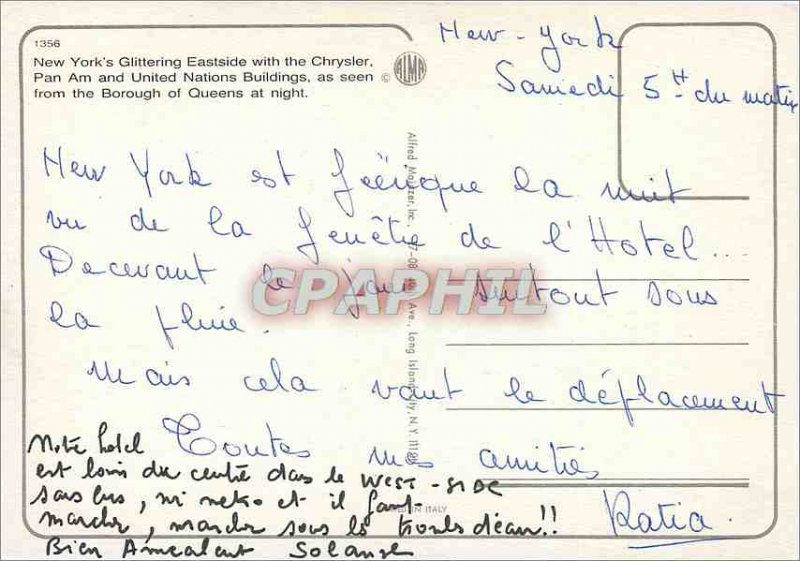 1356
New York's Glittering Eastside with the Chrysler,
Pan Am and United Nations Buildings, as seen ©
from the Borough of Queens at night.
ALMA
New-York
Samedi 5H du matin
New York est féérique la nuit
vu de la fenêtre de l'Hotel...
Decevant le jour surtout sous
la pluie.
Mais cela vaut le déplacement
Toutes mes amitiés
Katia.
Notre hotel
est loin du centre dans le WEST-SIDE
sans bus, ni metro et il faut
marcher, marcher sous les trombes d'eau!!
Bien Amicalement Solange
Alfred Mainzer, Inc., Ave., Long Island City, N.Y.
IN ITALY
CPAPHIL